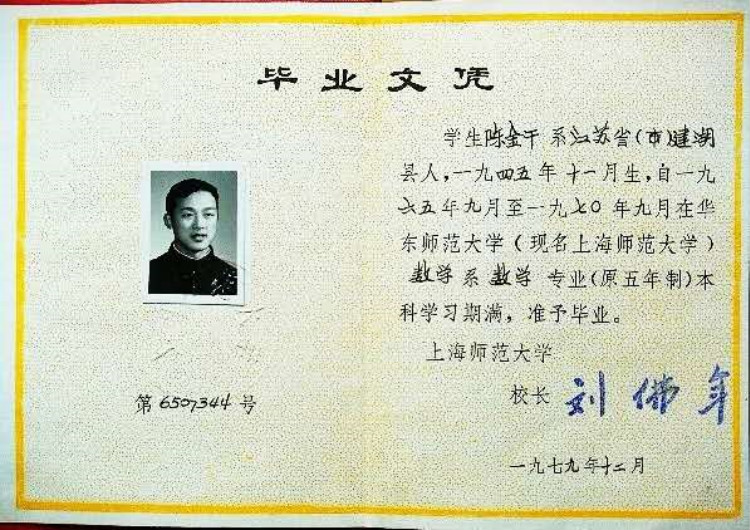 毕业文凭
学生陈金干系江苏省(市)建湖
县人,一九四五年十一月生,自一九
六五年九月至一九七〇年九月在华
东师范大学(现名上海师范大学)
数学系数学专业(原五年制)本
科学习期满,准予毕业。
上海师范大学
校长 刘佛年
第6507344号
一九七九年十二月